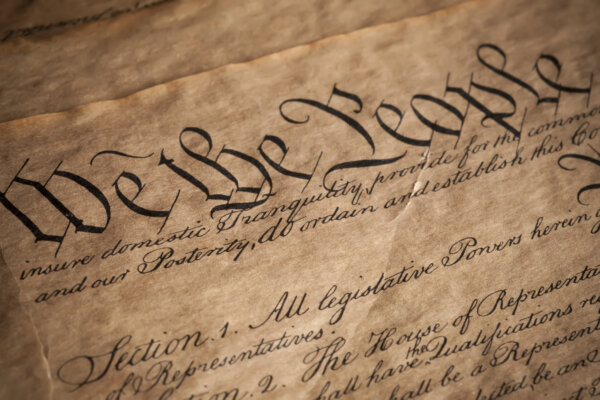 We the People
insure domestic Tranquility, provide for the common
and our Posterity, do ordain and establish this Co
Section. 1. All legislative Powers herein
of Representatives.
2. The House of Representa
the
hall have Qualifications re
hall be a Represent